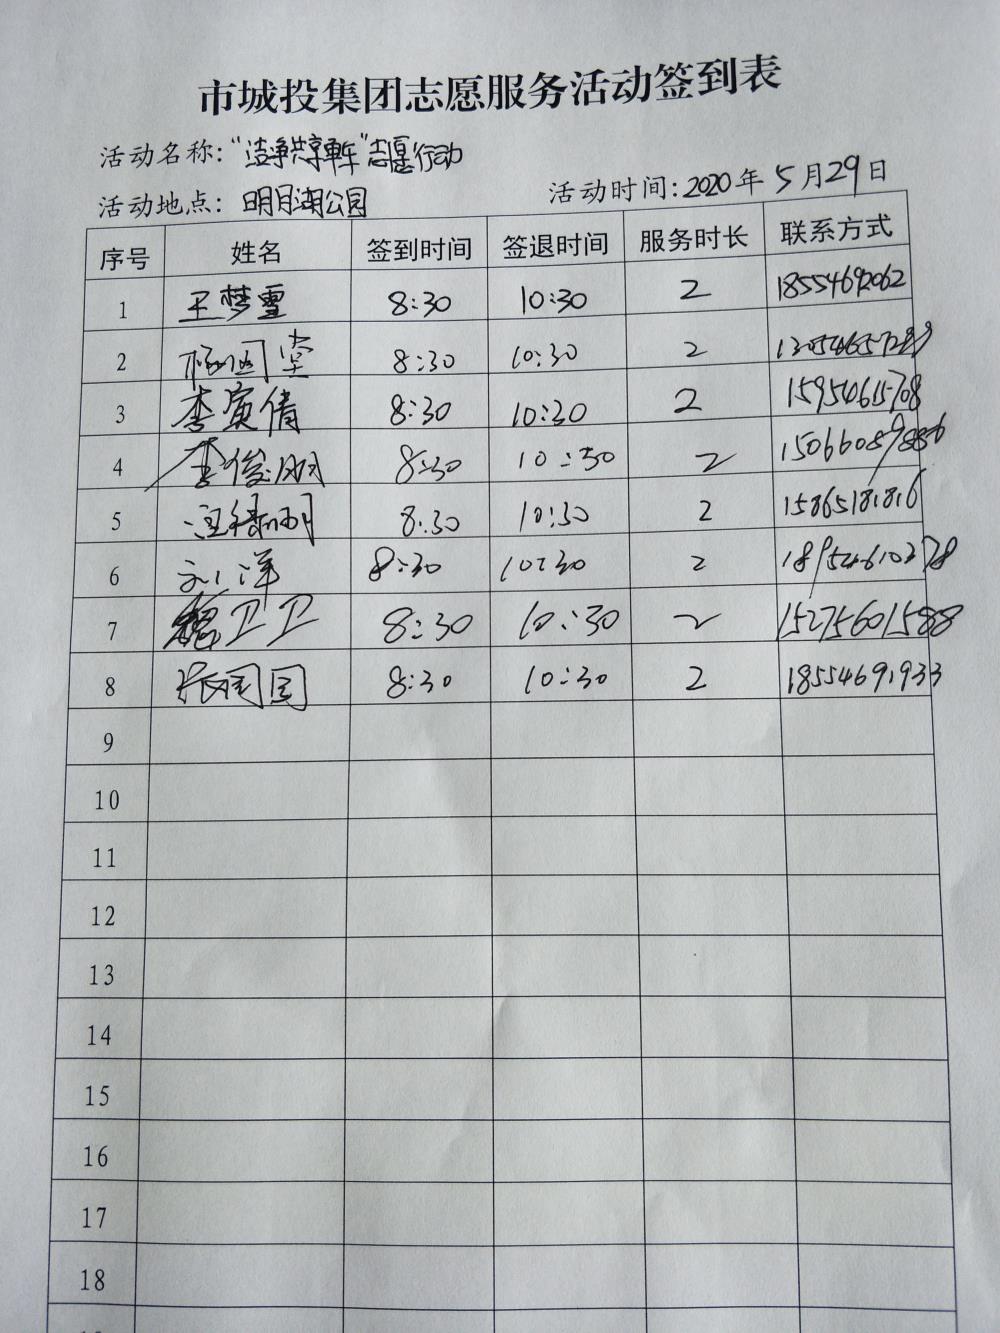 市城投集团志愿服务活动签到表
活动名称：“洁净共享单车”志愿行动
活动地点：明月湖公园 活动时间：2020年5月29日
序号 姓名 签到时间 签退时间 服务时长 联系方式
1 王梦雪 8:30 10:30 2 18554692062
2 8:30 10:30 2
3 李寅倩 8:30 10:30 2 159540615708
4 李俊朋 8:30 10:30 2 15066089886
5 8:30 10:30 2 15865181816
6 刘洋 8:30 10:30 2 18954610278
7 魏卫卫 8:30 10:30 2 15275601588
8 张国国 8:30 10:30 2 18554691933
9
10
11
12
13
14
15
16
17
18